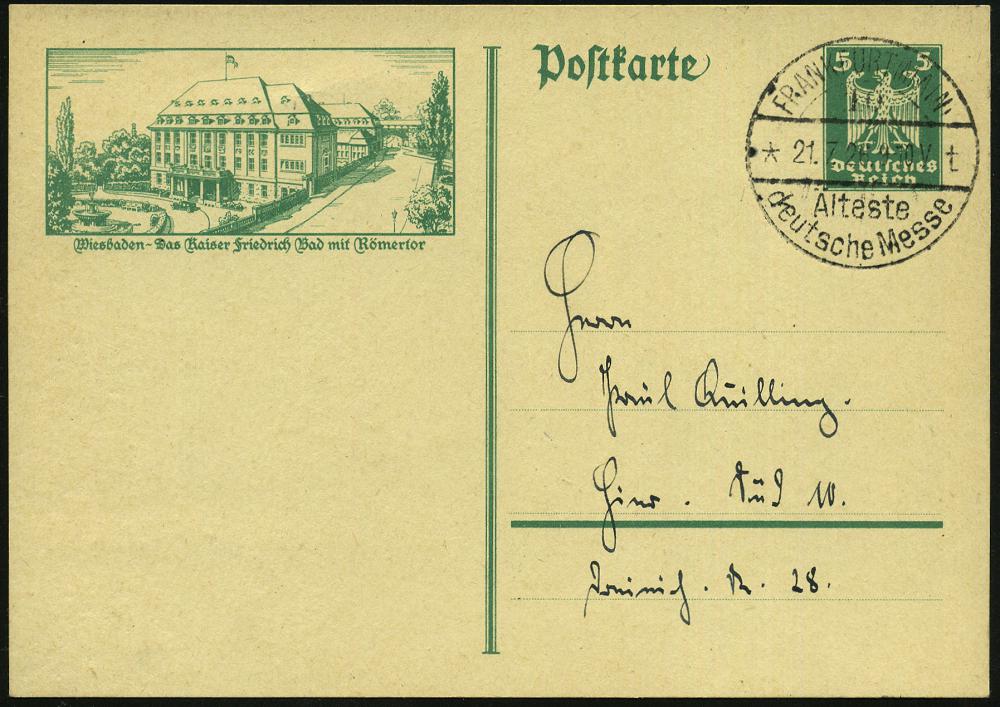 Wiesbaden - Das Kaiser Friedrich Bad mit Römertor
Postkarte
5 5
Deutsches
Reich
FRANKFURT (MAIN)
* 21.7.26 V t
Älteste
deutsche Messe
Herrn
Paul Quilling.
Hier. Süd 10.
28.